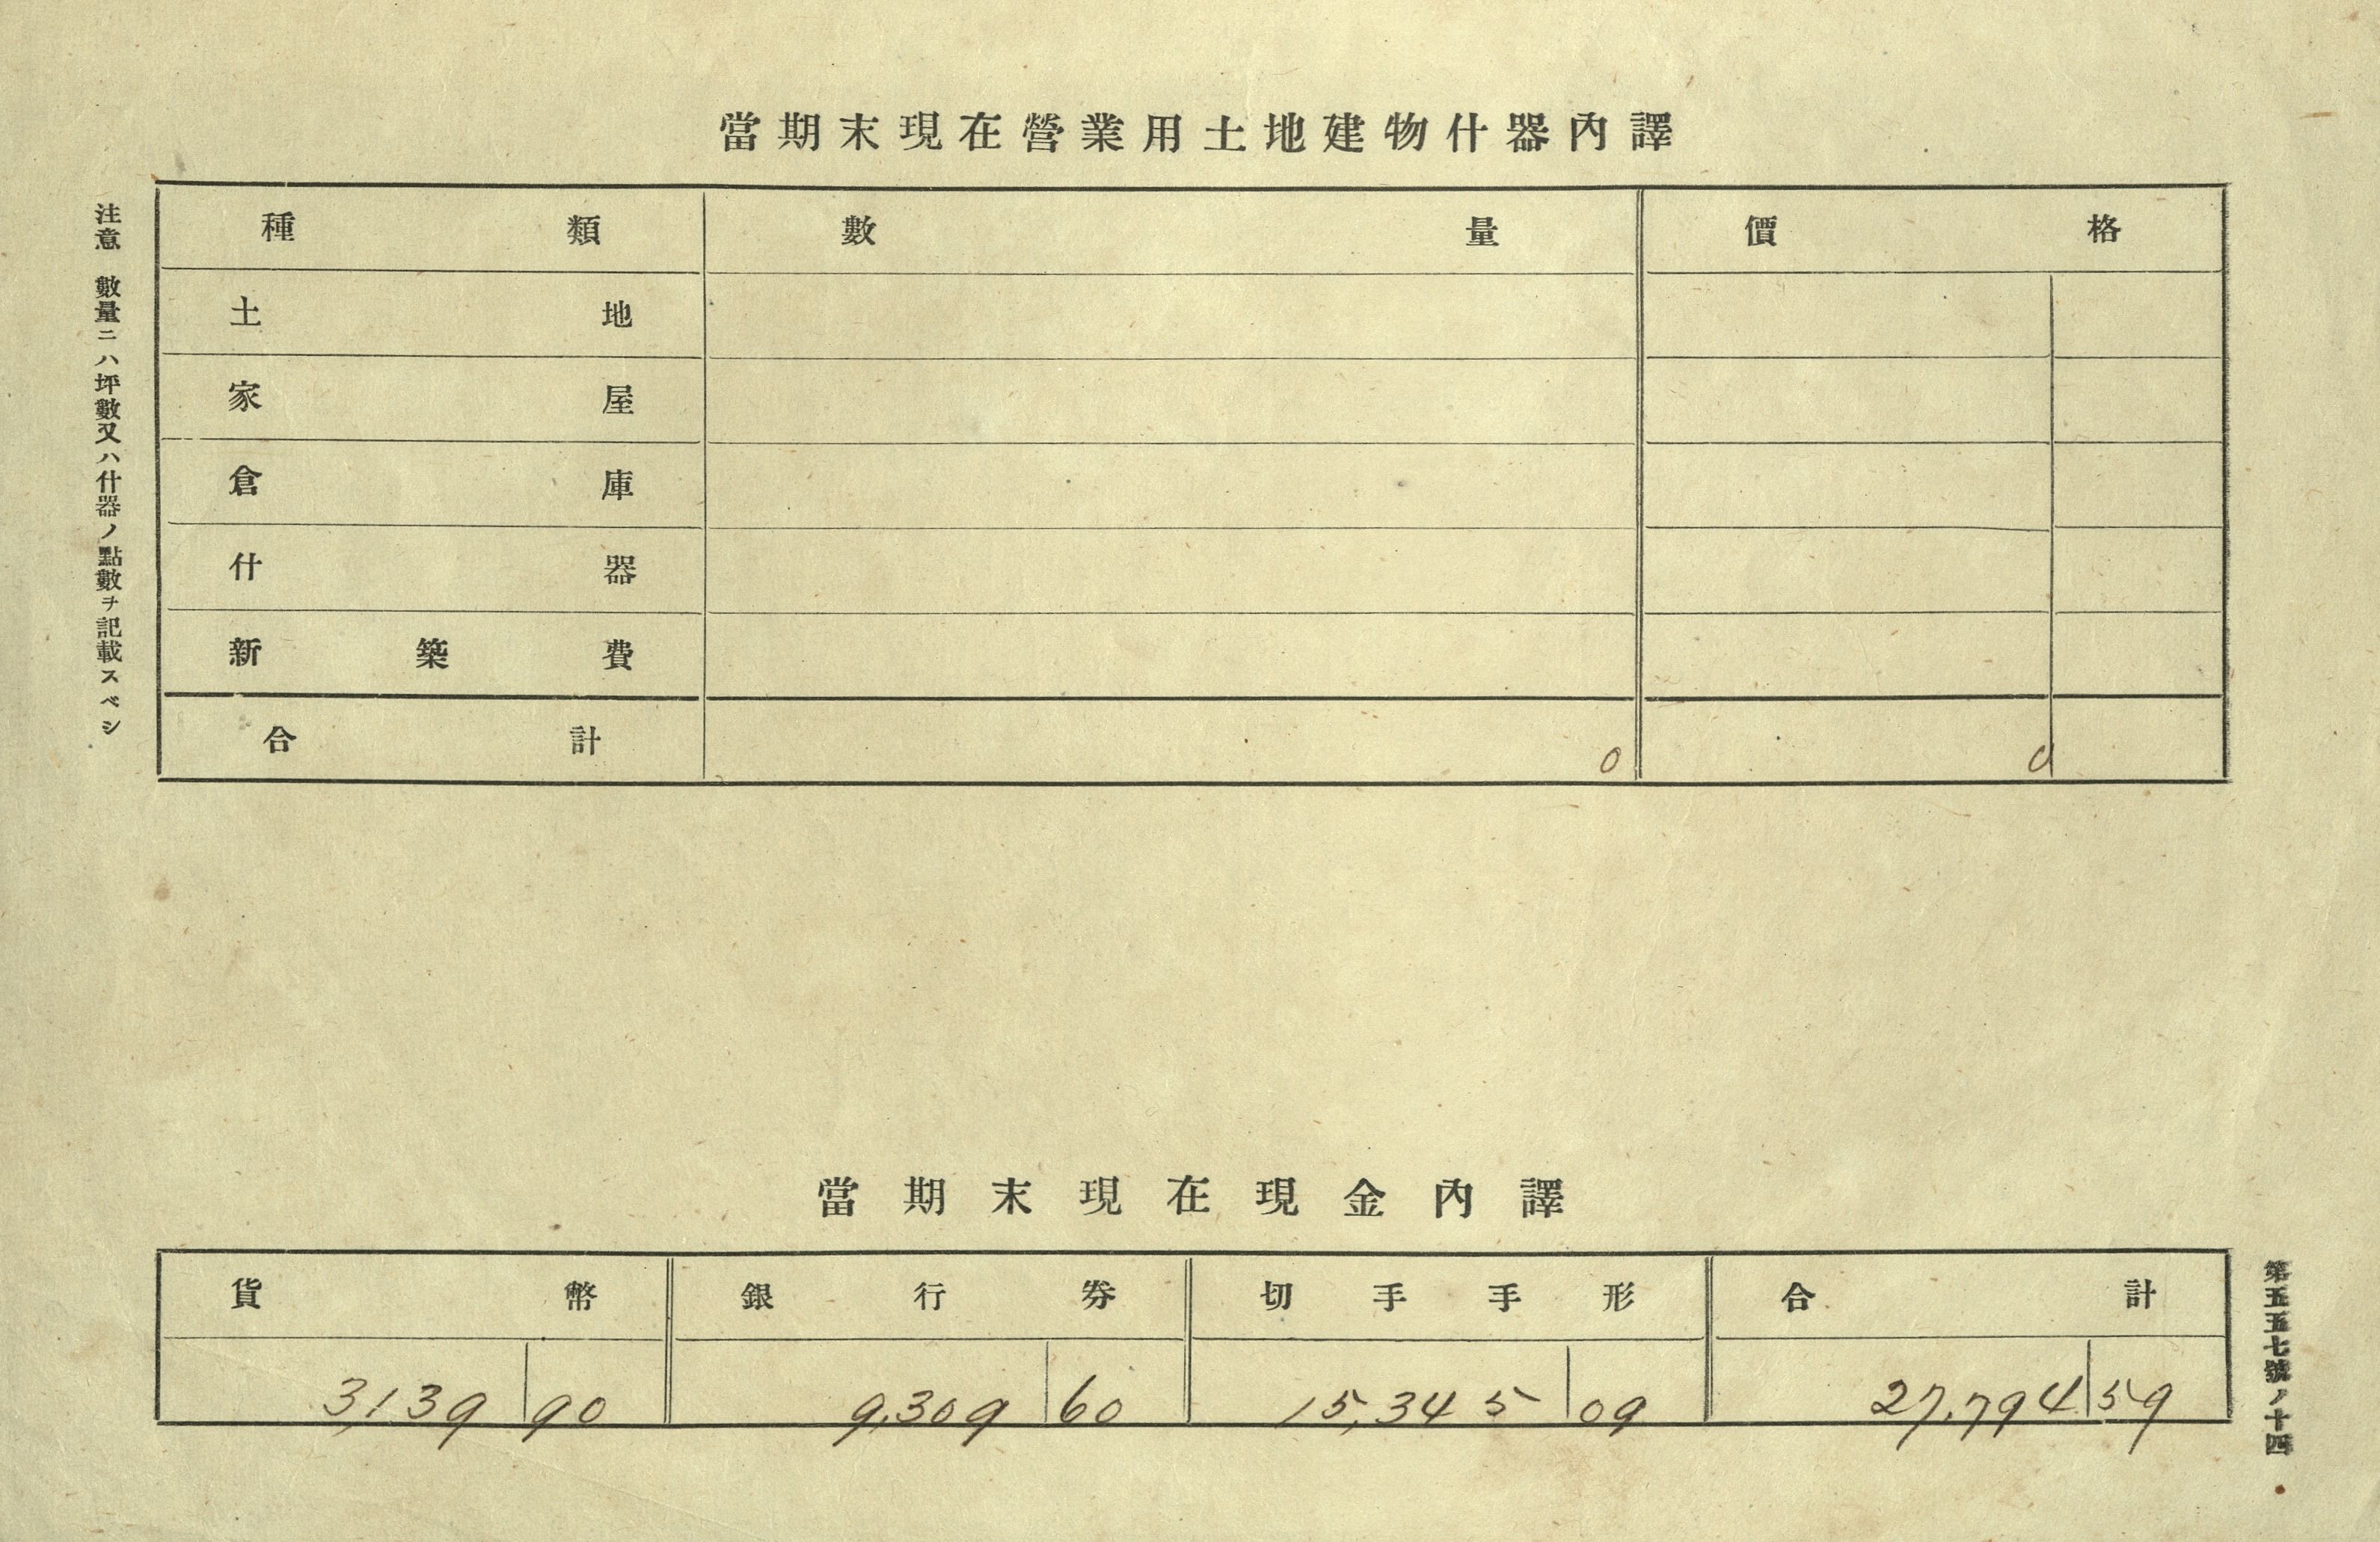 當期末現在營業用土地建物什器內譯
種類 數量 價格
土地
家屋
倉庫
什器
新築費
合計 0 0
注意 數量ニハ坪數又ハ什器ノ點數ヲ記載スベシ
當期末現在現金內譯
貨幣 銀行券 切手手形 合計
3,139 90 9,309 60 15,345 09 27,794 59
第五五五七號ノ十四